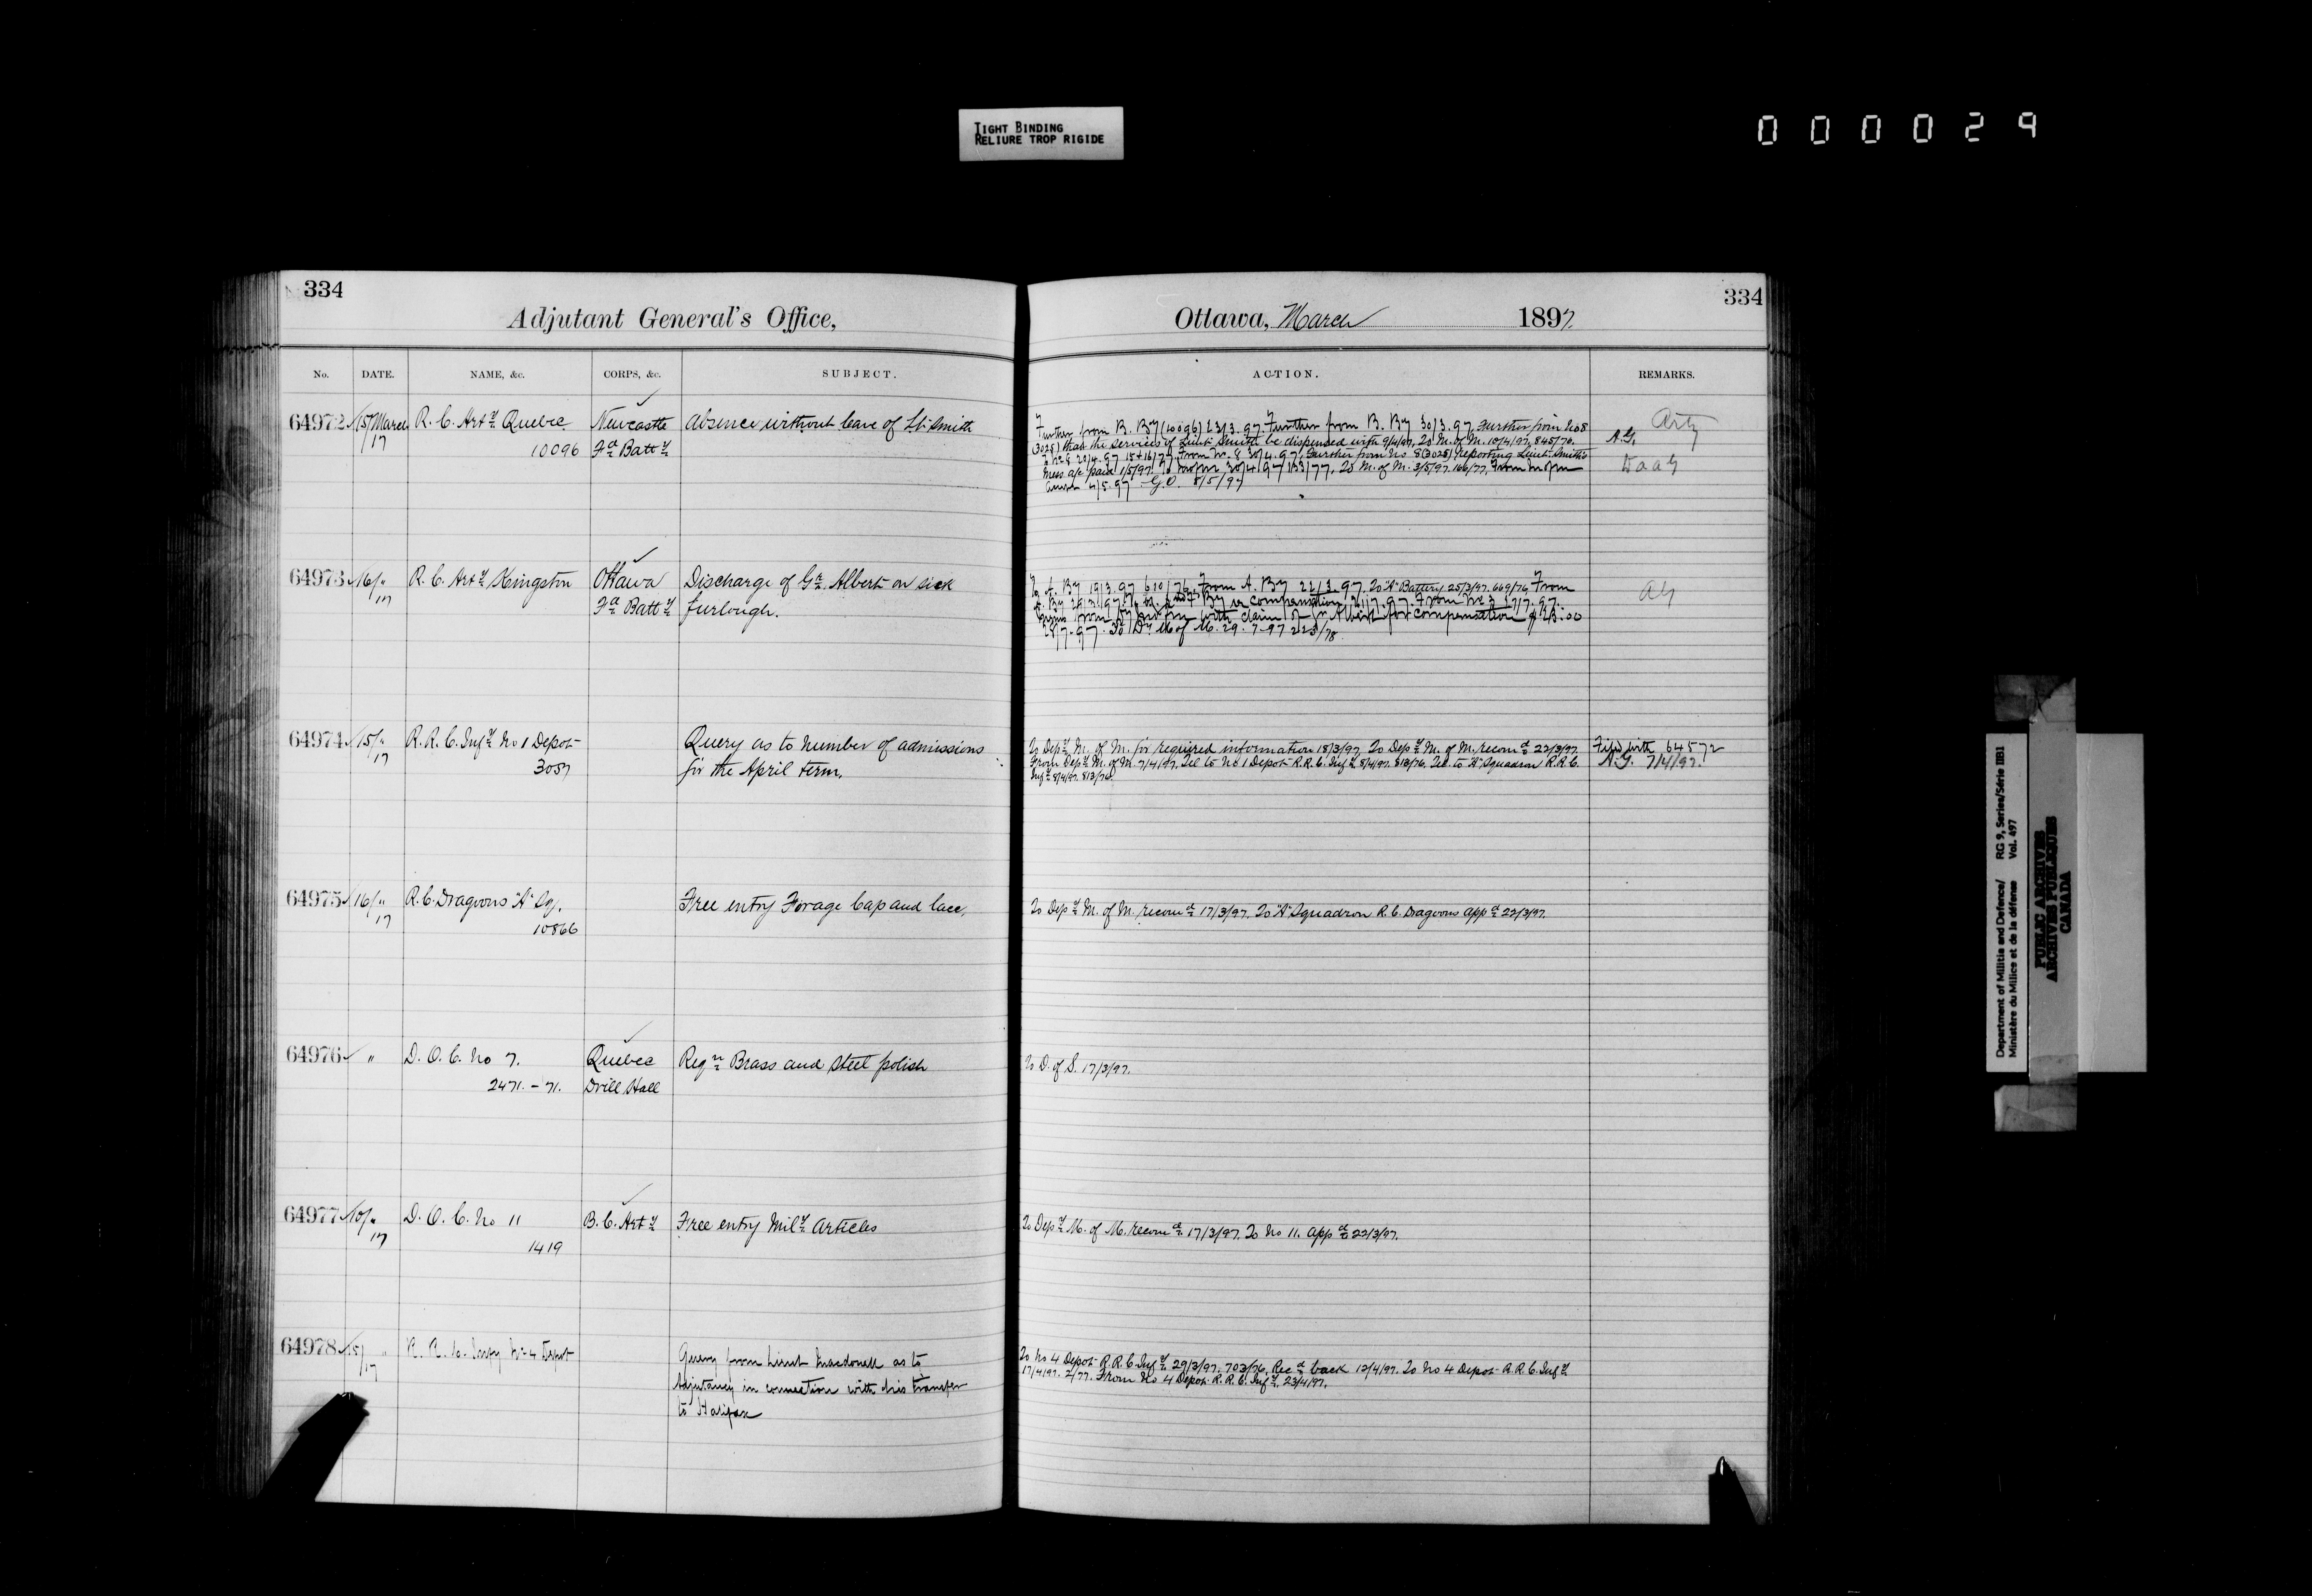 TIGHT BINDING
RELIURE TROP RIGIDE
000029
334
Adjutant General's Office,
No. DATE. NAME, &c. CORPS, &c. SUBJECT.
64972 15/March R. C. Arty Quebec Newcastle Absence without leave of Lt. Smith
17 10096 Fd Batty
64973 16/" R. C. Arty Kingston Ottawa Discharge of Gr. Albert on sick
17 Fd Batty furlough.
64974 15/" R. R. C. Infy No 1 Depot Query as to number of admissions
17 3057 for the April term.
64975 16/" R. C. Dragoons "A" Sq. Free entry Forage Cap and lace.
17 10866
64976 " D. O. C. No 7. Quebec Reqn Brass and Steel polish
2471.-71. Drill Hall
64977 10/" D. O. C. No 11 B. C. Arty Free entry Mily Articles
17 1419
64978 15/" R. R. C. Infy No 4 Depot Query from Lieut Macdonell as to
17 Adjutancy in connection with his transfer
to Halifax
334
Ottawa, March 1897.
ACTION. REMARKS.
Further from B. By (10096) 23/3.97. Further from B. By 30/3.97. Further from No 8 Arty
(3025) that the services of Lieut Smith be dispensed with 9/4/97. To M. of M. 10/4/97. 845/76. A.G.
Further from No 8 (3025) reporting Lieut. Smith's
Mess a/c paid 1/5/97. To M. of M. 3/5/97. 166/77.
4/5.97 G.O. 8/5/97
To A. By 19/3.97 610/76. From A. By 22/3.97. To "A" Battery 25/3/97. 669/76. From AG
with claim of Gr Albert for compensation
M. of M. 29.7.97 225/78
To Depy M. of M. for required information 18/3/97. To Depy M. of M. recomd 22/3/97. Filed with 64572
From Depy M. of M. 7/4/97. Tel to No 1 Depot R.R.C. Infy 8/4/97. 813/76. Tel. to "A" Squadron R.R.C. A.G. 7/4/97.
Infy 8/4/97. 813/76.
To Depy M. of M. recomd 17/3/97. To "A" Squadron R. C. Dragoons appd 22/3/97.
To D. of S. 17/3/97.
To Depy M. of M. recomd 17/3/97. To No 11. appd 22/3/97.
To No 4 Depot R.R.C. Infy 29/3/97. 703/76. Recd back 12/4/97. To No 4 Depot R.R.C. Infy
17/4/97. 2/77. From No 4 Depot R.R.C. Infy 23/4/97.
Department of Militia and Defence/ RG 9, Series/Série IIB1
Ministère du Milice et de la défense Vol. 497
PUBLIC ARCHIVES
ARCHIVES PUBLIQUES
CANADA